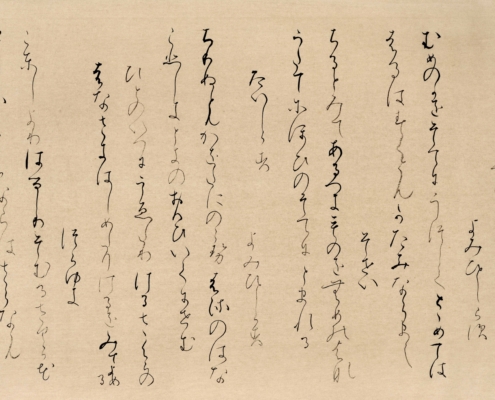 よみひとしらす
むめのかをそてにうつしてとゝめては
はるはすくともかたみならまし
そせい
ちるとみてあるへきものをむめのはな
うたてにほひのそてにとまれる
たいしらす
よみひとしらす
ちりぬともかをたにのこせむめのはな
こひしきときのおもひいてにせむ
ひとのいへにうゑたりけるさくらの
はなさきはしめたりけるをみてよめる
つらゆき
ことしよりはるしりそむるさくら